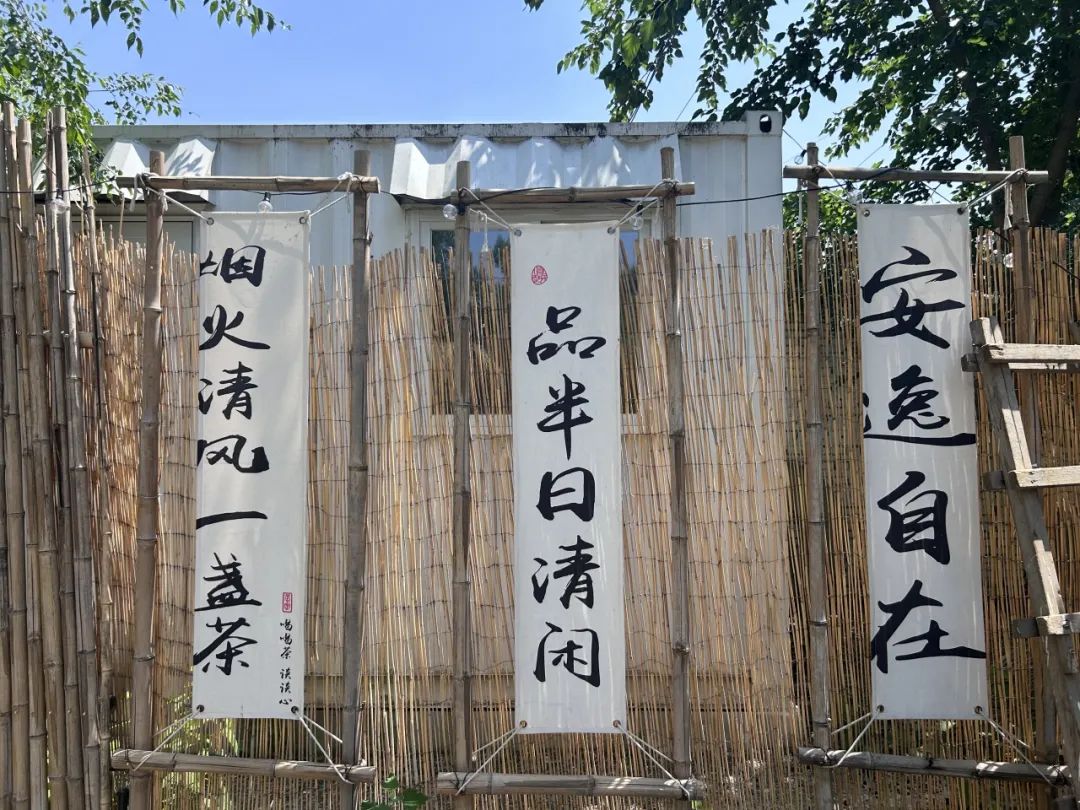 烟火清风一盏茶
喝喝茶 谈谈心
品半日清闲
安逸自在